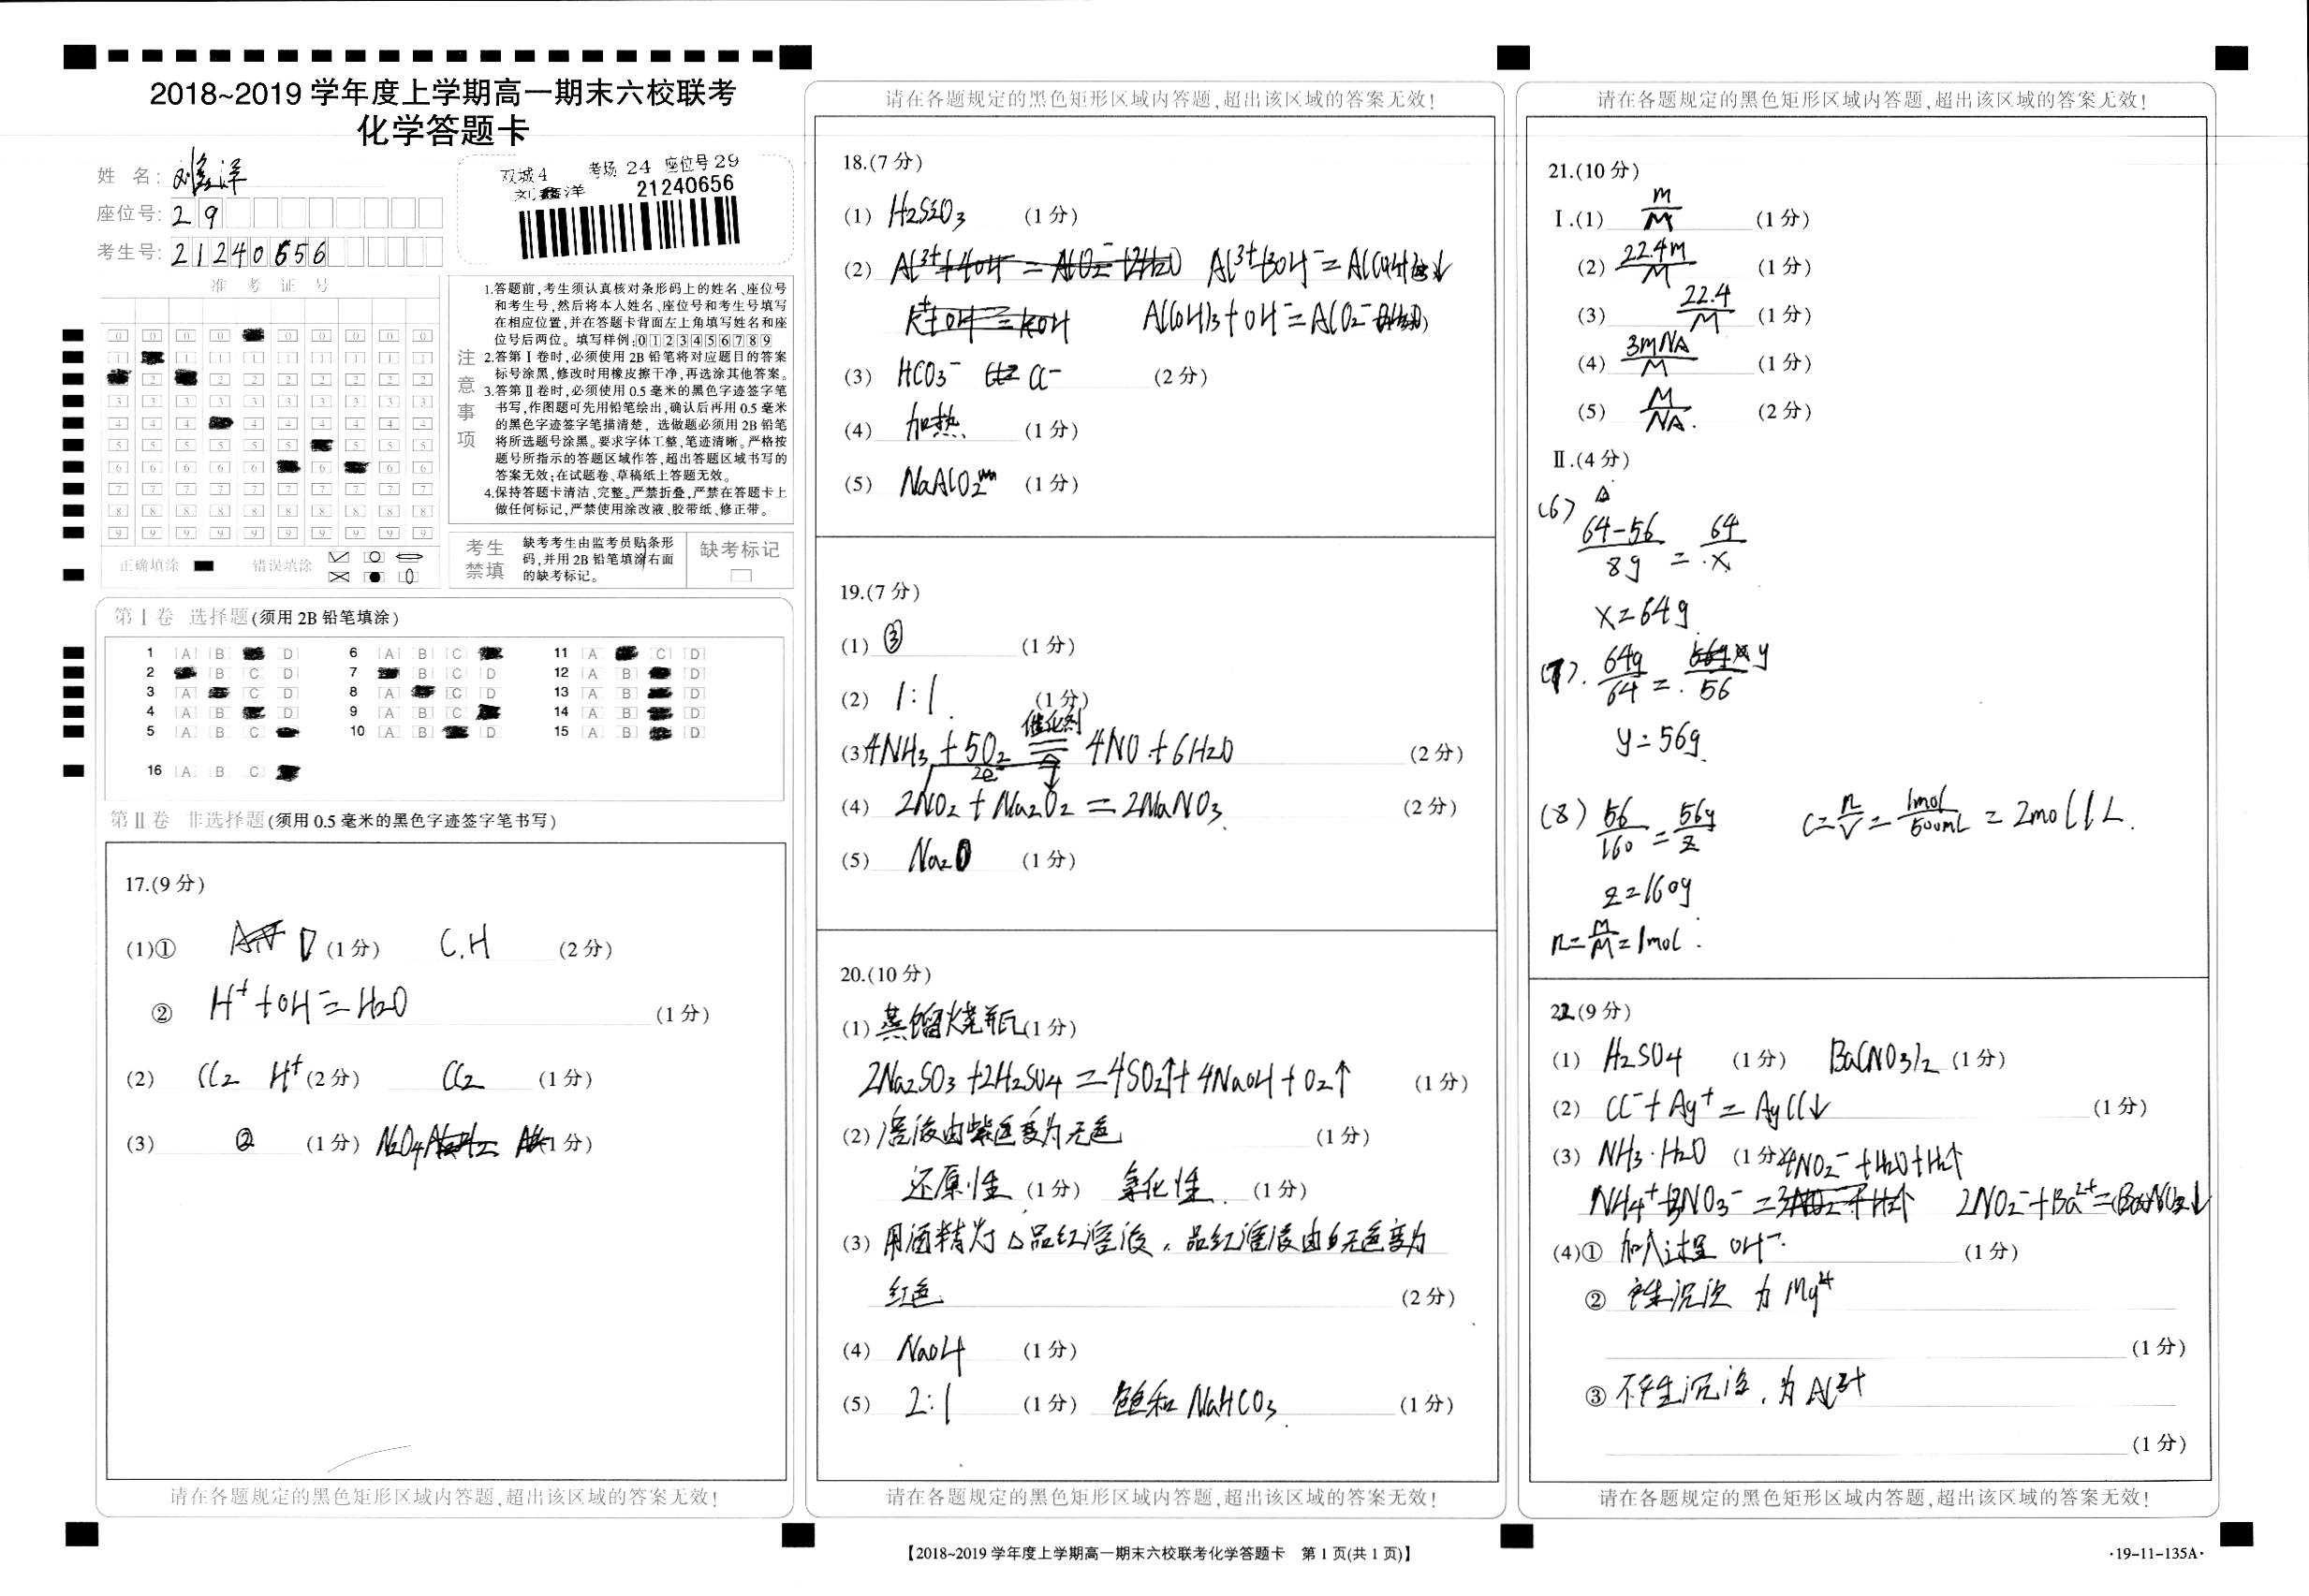 2018~2019 学年度上学期高一期末六校联考
化学答题卡
姓 名: 刘鑫洋
座位号: 29
考生号: 21240656
双城4 考场 24 座位号 29
刘鑫洋 21240656
准 考 证 号
注意事项
1.答题前,考生须认真核对条形码上的姓名、座位号
和考生号,然后将本人姓名、座位号和考生号填写
在相应位置,并在答题卡背面左上角填写姓名和座
位号后两位。填写样例:0 1 2 3 4 5 6 7 8 9
2.答第Ⅰ卷时,必须使用 2B 铅笔将对应题目的答案
标号涂黑,修改时用橡皮擦干净,再选涂其他答案。
3.答第Ⅱ卷时,必须使用 0.5 毫米的黑色字迹签字笔
书写,作图题可先用铅笔绘出,确认后再用 0.5 毫米
的黑色字迹签字笔描清楚, 选做题必须用 2B 铅笔
将所选题号涂黑。要求字体工整,笔迹清晰。严格按
题号所指示的答题区域作答,超出答题区域书写的
答案无效;在试题卷、草稿纸上答题无效。
4.保持答题卡清洁、完整。严禁折叠,严禁在答题卡上
做任何标记,严禁使用涂改液、胶带纸、修正带。
正确填涂 错误填涂
考生禁填
缺考考生由监考员贴条形
码,并用 2B 铅笔填涂右面
的缺考标记。
缺考标记
第Ⅰ卷 选择题(须用 2B 铅笔填涂)
1 A B D 6 A B C 11 A C D
2 B C D 7 B C D 12 A B D
3 A C D 8 A C D 13 A B D
4 A B D 9 A B C 14 A B D
5 A B C 10 A B D 15 A B D
16 A B C
第Ⅱ卷 非选择题(须用 0.5 毫米的黑色字迹签字笔书写)
17.(9 分)
(1)① D (1 分) C.H (2 分)
② H⁺+OH⁻=H₂O (1 分)
(2) Cl₂ H⁺ (2 分) Cl₂ (1 分)
(3) ② (1 分) N₂O₄ (1 分)
请在各题规定的黑色矩形区域内答题,超出该区域的答案无效!
请在各题规定的黑色矩形区域内答题,超出该区域的答案无效!
18.(7 分)
(1) H₂SiO₃ (1 分)
(2) Al³⁺+3OH⁻=Al(OH)₃↓
Al(OH)₃+OH⁻=AlO₂⁻
(3) HCO₃⁻ Cl⁻ (2 分)
(4) 加热 (1 分)
(5) NaAlO₂ (1 分)
19.(7 分)
(1) ③ (1 分)
(2) 1:1 (1 分)
催化剂
(3) 4NH₃+5O₂=4NO+6H₂O (2 分)
△
2e⁻
(4) 2NO₂+Na₂O₂=2NaNO₃ (2 分)
(5) Na₂O (1 分)
20.(10 分)
(1) 蒸馏烧瓶 (1 分)
2Na₂SO₃+2H₂SO₄=4SO₂↑+4NaOH+O₂↑ (1 分)
(2) 溶液由紫色变为无色 (1 分)
还原性 (1 分) 氧化性 (1 分)
(3) 用酒精灯△品红溶液,品红溶液由无色变为
红色 (2 分)
(4) NaOH (1 分)
(5) 2:1 (1 分) 饱和 NaHCO₃ (1 分)
请在各题规定的黑色矩形区域内答题,超出该区域的答案无效!
请在各题规定的黑色矩形区域内答题,超出该区域的答案无效!
21.(10 分)
Ⅰ.(1) m/M (1 分)
(2) 22.4m/M (1 分)
(3) 22.4/M (1 分)
(4) 3mNA/M (1 分)
(5) M/NA. (2 分)
Ⅱ.(4 分)
(6) △
64-56/8g = 64/x
x=64g
(7). 64g/64 = y/56
y=56g.
(8) 56/160 = 56g/z c=n/V=1mol/500mL=2mol/L.
z=160g
n=m/M=1mol.
22.(9 分)
(1) H₂SO₄ (1 分) Ba(NO₃)₂ (1 分)
(2) Cl⁻+Ag⁺=AgCl↓ (1 分)
(3) NH₃·H₂O (1 分) 4NO₂⁻+H₂O+H₂↑
NH₄⁺+3NO₃⁻= 2NO₂⁻+Ba²⁺=
(4)① 加入过量 OH⁻. (1 分)
② 产生沉淀 为 Mg²⁺
(1 分)
③ 不产生沉淀,为 Al³⁺
(1 分)
请在各题规定的黑色矩形区域内答题,超出该区域的答案无效!
【2018~2019 学年度上学期高一期末六校联考化学答题卡 第 1 页(共 1 页)】
·19-11-135A·